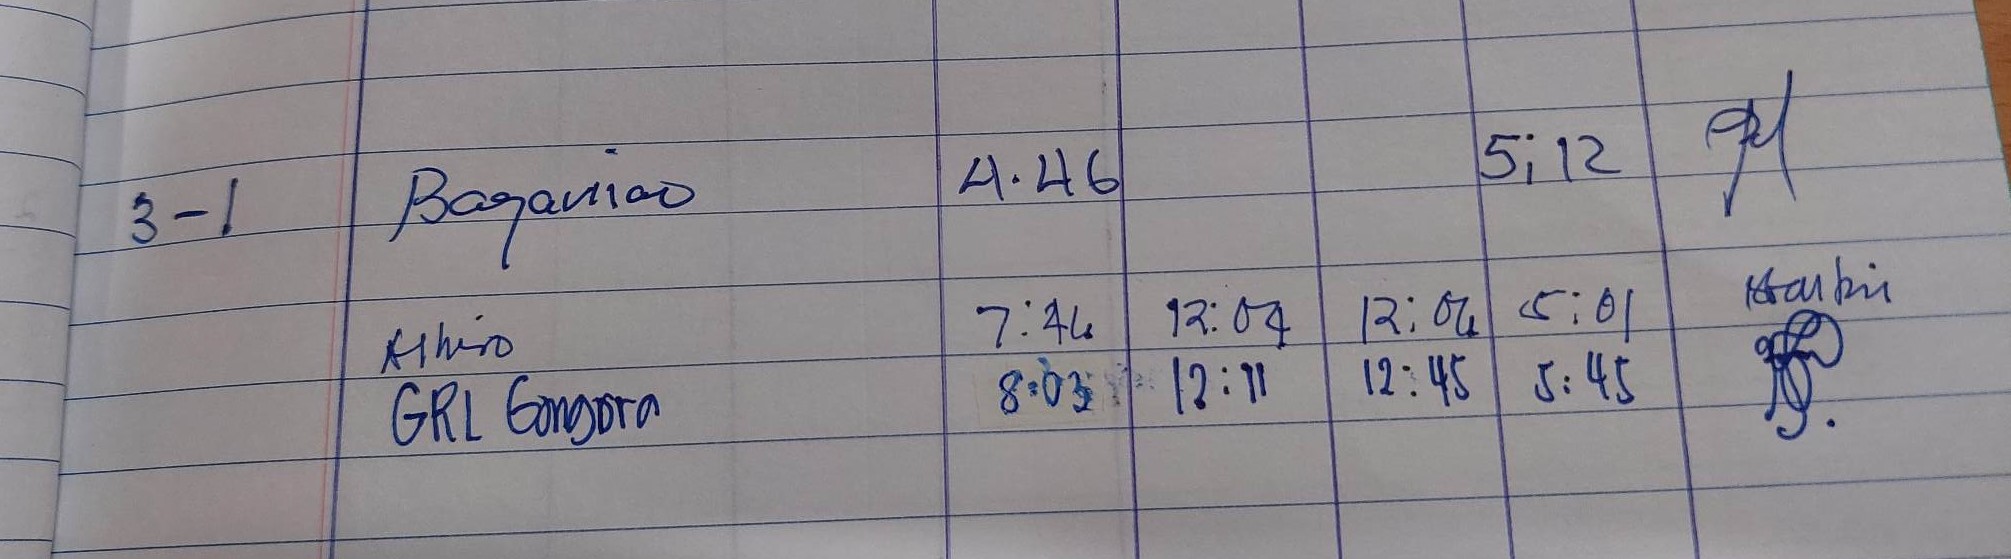 3-1 Baganiao 4.46 5:12
7:46 12:04 12:06 5:01
GRL Gongora 8:03 12:11 12:45 5:45